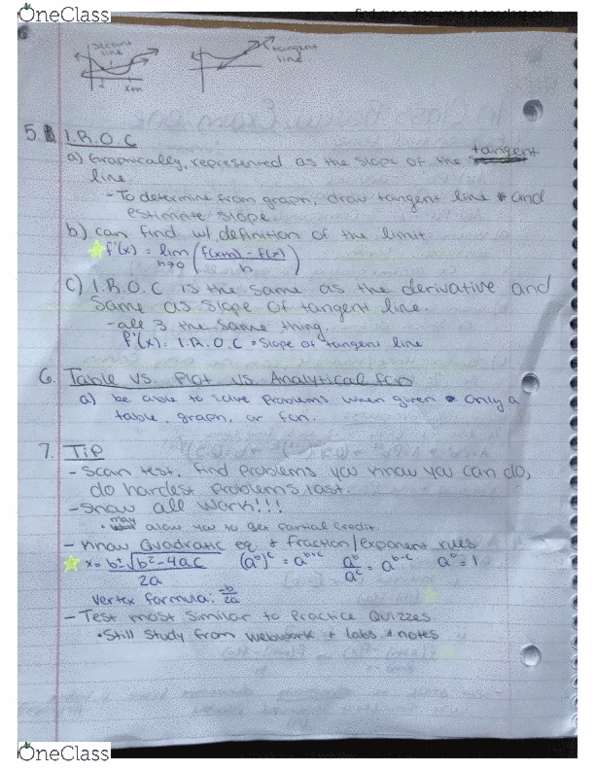 OneClass
secant
line
tangent
line
x+h
5. I.R.O.C
a) Graphically, represented as the slope of the tangent
line.
- To determine from graph, draw tangent line and
estimate slope.
b) can find w/ definition of the limit
f'(x) = lim h→0 (f(x+h) - f(x) / h)
c) I.R.O.C is the same as the derivative and
same as slope of tangent line.
- all 3 the same thing.
f'(x) = I.R.O.C = slope of tangent line
6. Table vs. Plot vs. Analytical fcn
a) be able to solve problems when given only a
table, graph, or fcn.
7. Tip
- Scan test, find problems you know you can do,
do hardest problems last.
- Show all work!!!
• may allow you to get partial credit
- Know Quadratic eq. + fraction/exponent rules
x = b±√b²-4ac / 2a (a^b)^c = a^b+c a^b/a^c = a^b-c a^0 = 1
vertex formula: -b/2a
- Test most similar to Practice Quizzes.
• Still study from webwork + labs + notes
OneClass